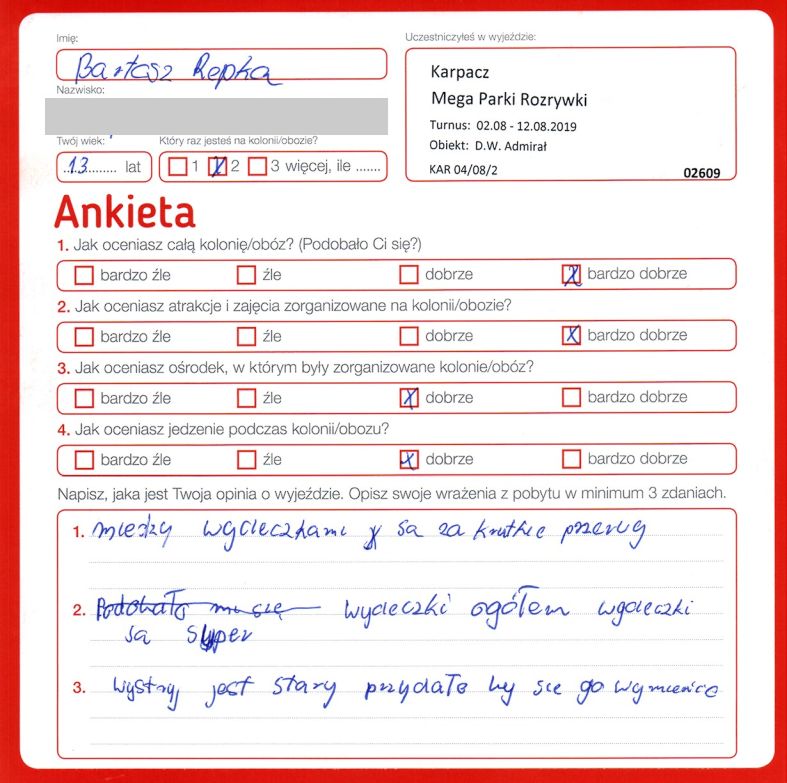 Imię:
Bartosz Repka
Nazwisko:
Twój wiek:
Który raz jesteś na kolonii/obozie?
13 lat
1 X 2 3 więcej, ile .......
Uczestniczyłeś w wyjeździe:
Karpacz
Mega Parki Rozrywki
Turnus: 02.08 - 12.08.2019
Obiekt: D.W. Admirał
KAR 04/08/2
02609
Ankieta
1. Jak oceniasz całą kolonię/obóz? (Podobało Ci się?)
bardzo źle źle dobrze X bardzo dobrze
2. Jak oceniasz atrakcje i zajęcia zorganizowane na kolonii/obozie?
bardzo źle źle dobrze X bardzo dobrze
3. Jak oceniasz ośrodek, w którym były zorganizowane kolonie/obóz?
bardzo źle źle X dobrze bardzo dobrze
4. Jak oceniasz jedzenie podczas kolonii/obozu?
bardzo źle źle X dobrze bardzo dobrze
Napisz, jaka jest Twoja opinia o wyjeździe. Opisz swoje wrażenia z pobytu w minimum 3 zdaniach.
1. między wycieczkami są za krutkie przerwy
2. Podobało mi się wycieczki ogółem wycieczki
sa super
3. Wystruj jest stary przydało by sie go wymienic